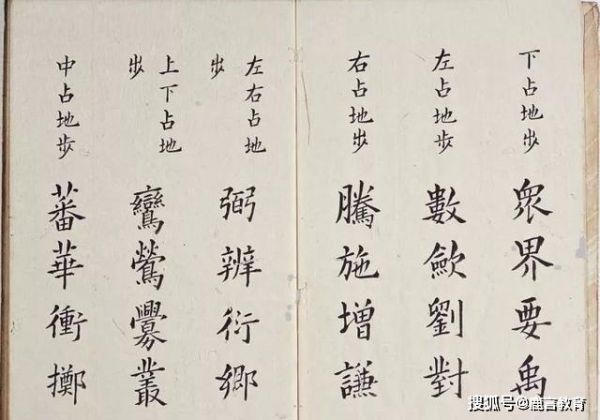 下占地步
眾界要禹
左占地步
數歛劉對
右占地步
騰施增謙
左右占地
步
弼辨衍鄉
上下占地
步
鸞鶯釁叢
中占地步
蕃華衝擲
搜狐号@鹿言教育